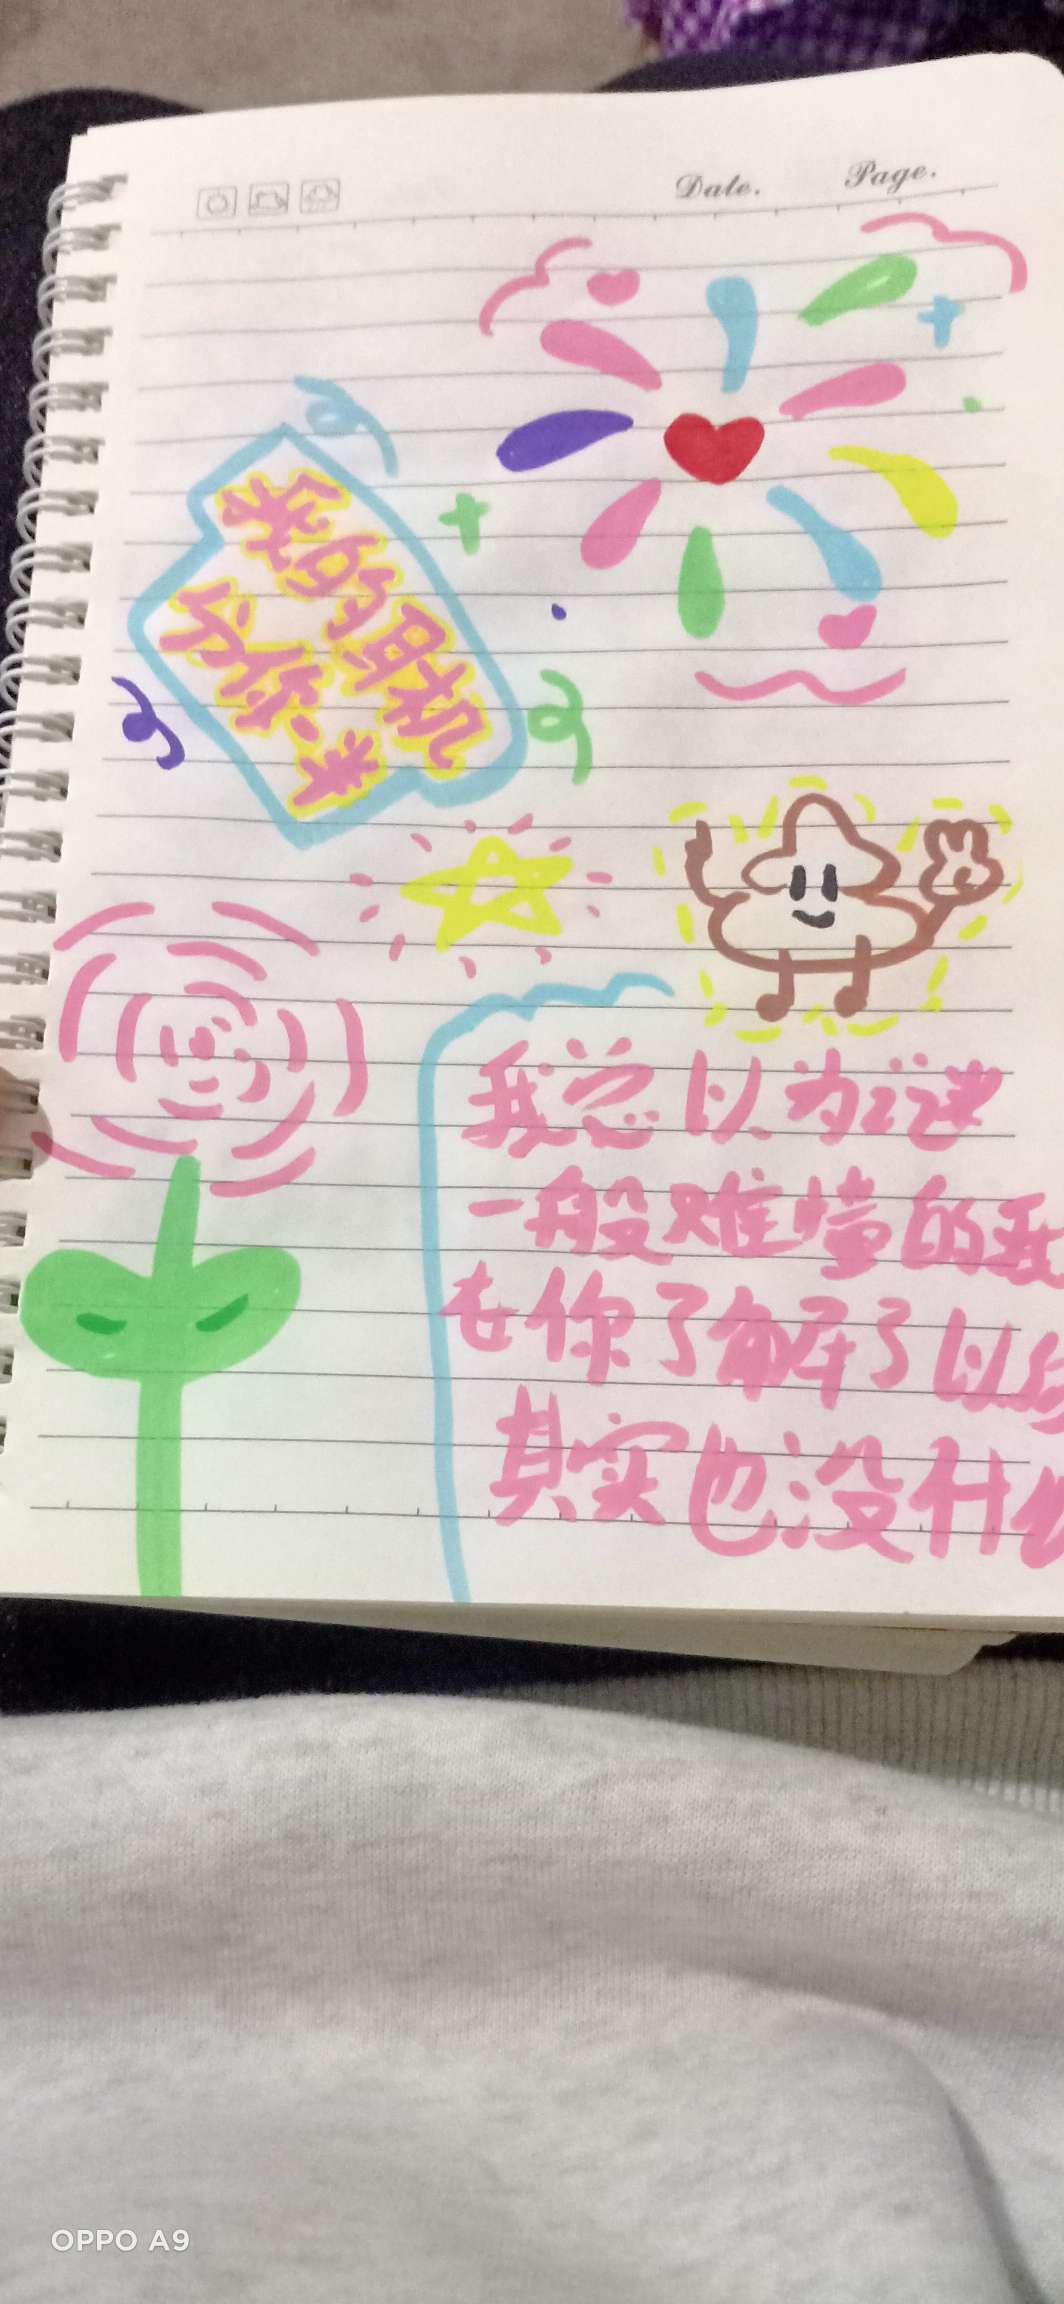 Date. Page.
我的耳机
分你一半
我总以为谜
一般难懂的我
在你了解了以后
其实也没什
OPPO A9